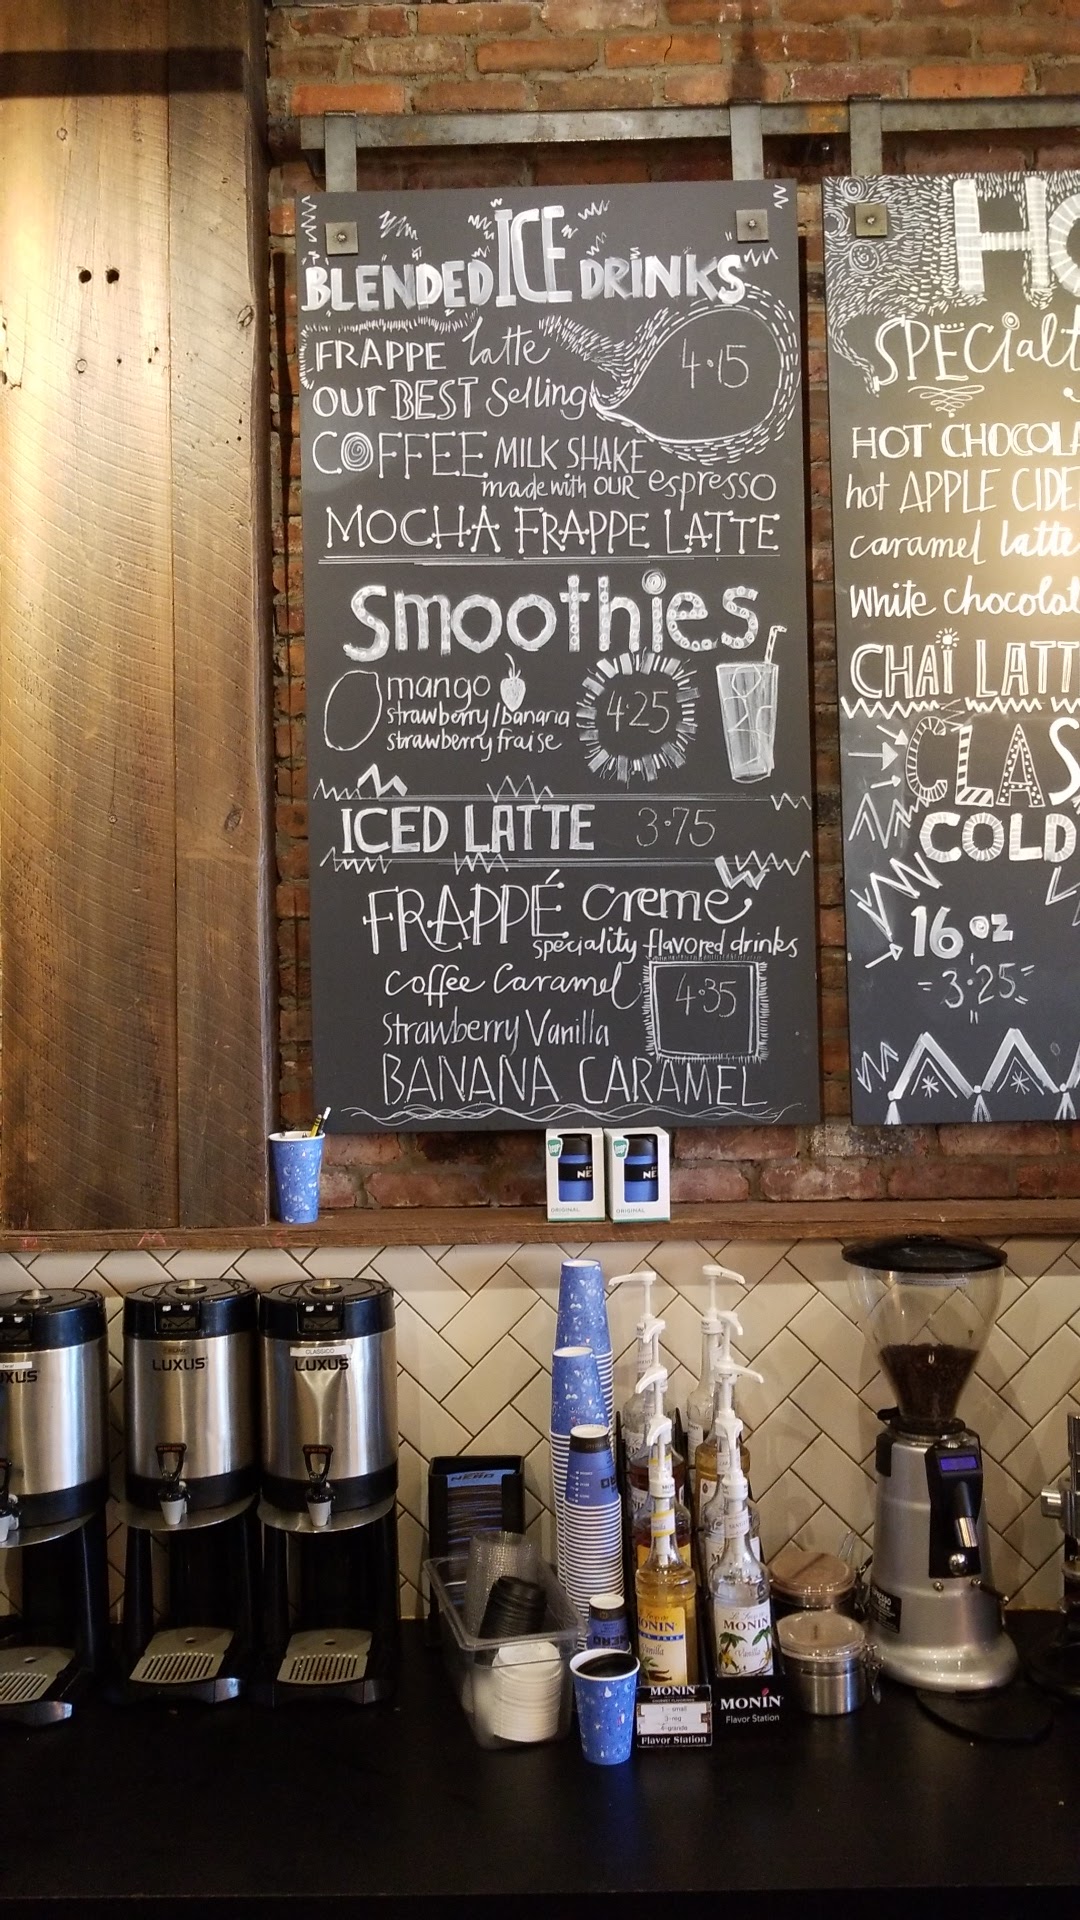 BLENDED ICE DRINKS
FRAPPE latte 4.15
OUR BEST Selling
COFFEE MILK SHAKE
made with OUR espresso
MOCHA FRAPPE LATTE
Smoothies
mango
strawberry/banana 4.25
strawberry fraise
ICED LATTE 3.75
FRAPPÉ Creme
speciality flavored drinks
Coffee Caramel 4.35
Strawberry Vanilla
BANANA CARAMEL
HO
SPECialt
HOT CHOCOLA
hot APPLE CIDE
caramel latte
White chocolat
CHAI LATT
CLAS
COLD
16 oz
3.25
NE
ORIGINAL
NE
ORIGINAL
UXUS
LUXUS
CLASSICO
LUXUS
NERO
NERO
MONIN
Vanilla
Le Sirop de
MONIN
Vanilla
MONIN
1 - small
3-reg
4-grande
Flavor Station
MONIN
Flavor Station